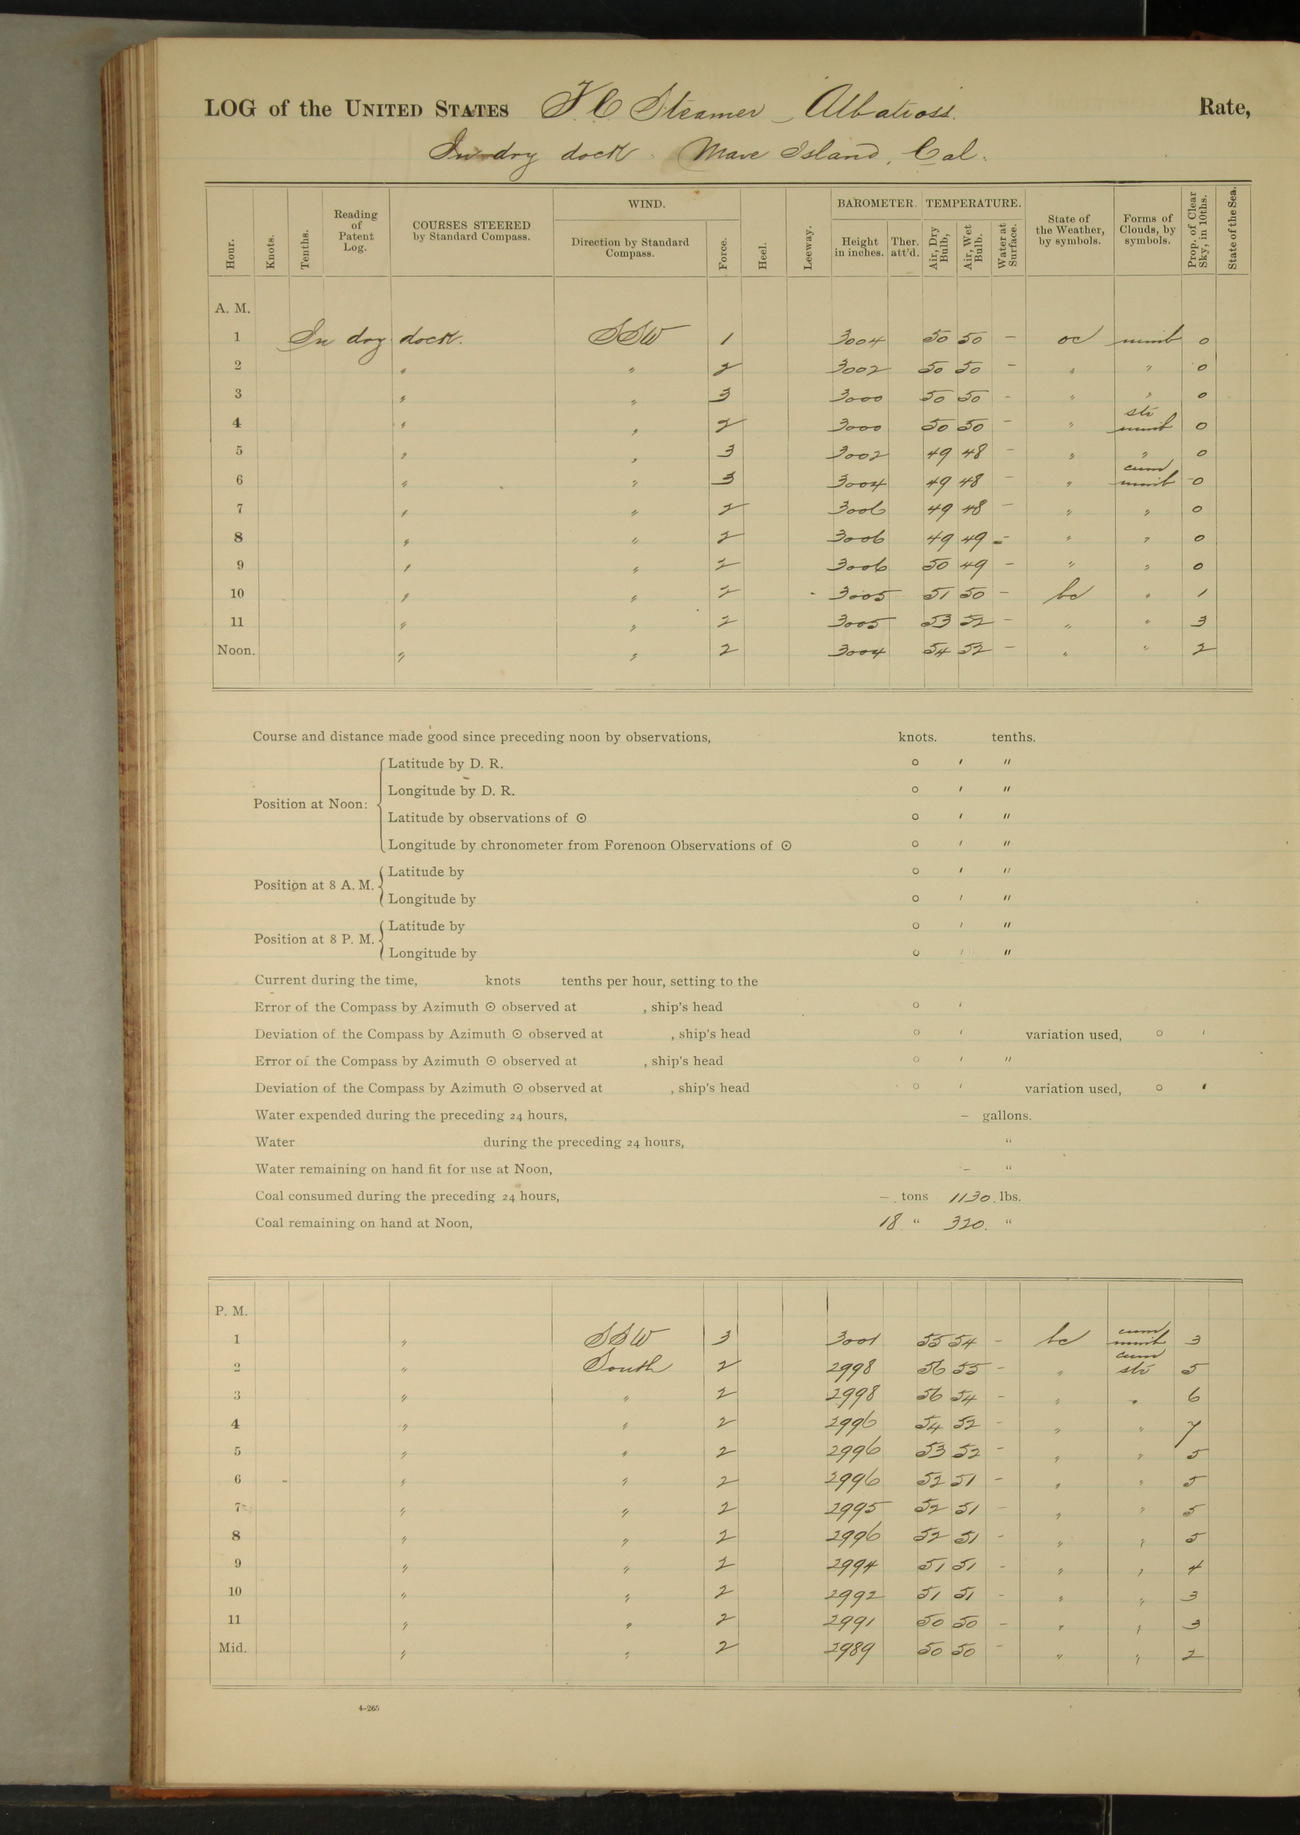 LOG of the UNITED STATES F.C. Steamer Albatross. Rate,
In dry dock Mare Island, Cal.
Hour. Knots. Tenths. Reading of Patent Log. COURSES STEERED by Standard Compass. WIND. Direction by Standard Compass. Force. Heel. Leeway. BAROMETER. Height in inches. Ther. att'd. TEMPERATURE. Air, Dry Bulb, Air, Wet Bulb. Water at Surface. State of the Weather, by symbols. Forms of Clouds, by symbols. Prop. of Clear Sky, in 10ths. State of the Sea.
A. M.
1 In dry dock. SSW 1 3004 50 50 – oc nimb 0
2 " " 2 3002 50 50 – " " 0
3 " " 3 3000 50 50 - " " 0
4 " " 2 3000 50 50 – " str nimb 0
5 " " 3 3002 49 48 – " " 0
6 " " 3 3004 49 48 – " cum nimb 0
7 " " 2 3006 49 48 – " " 0
8 " " 2 3006 49 49 – " " 0
9 " " 2 3006 50 49 – " " 0
10 " " 2 3005 51 50 – bc " 1
11 " " 2 3005 53 52 – " " 3
Noon. " " 2 3004 54 52 – " " 2
Course and distance made good since preceding noon by observations, knots. tenths.
Position at Noon: Latitude by D. R. ° ′ ″
Longitude by D. R. ° ′ ″
Latitude by observations of ☉ ° ′ ″
Longitude by chronometer from Forenoon Observations of ☉ ° ′ ″
Position at 8 A. M. Latitude by ° ′ ″
Longitude by ° ′ ″
Position at 8 P. M. Latitude by ° ′ ″
Longitude by ° ′ ″
Current during the time, knots tenths per hour, setting to the
Error of the Compass by Azimuth ☉ observed at , ship's head ° ′
Deviation of the Compass by Azimuth ☉ observed at , ship's head ° ′ variation used, ° ′
Error of the Compass by Azimuth ☉ observed at , ship's head ° ′ ″
Deviation of the Compass by Azimuth ☉ observed at , ship's head ° ′ variation used, ° ′
Water expended during the preceding 24 hours, – gallons.
Water during the preceding 24 hours, "
Water remaining on hand fit for use at Noon, – "
Coal consumed during the preceding 24 hours, – tons 1130 lbs.
Coal remaining on hand at Noon, 18 " 320 "
P. M.
1 " SSW 3 3001 55 54 – bc cum nimb 3
2 " South 2 2998 56 55 – " cum str 5
3 " " 2 2998 56 54 – " " 6
4 " " 2 2996 54 52 – " " 7
5 " " 2 2996 53 52 – " " 5
6 " " 2 2996 52 51 – " " 5
7 " " 2 2995 52 51 – " " 5
8 " " 2 2996 52 51 – " " 5
9 " " 2 2994 51 51 – " " 4
10 " " 2 2992 51 51 – " " 3
11 " " 2 2991 50 50 – " " 3
Mid. " " 2 2989 50 50 – " " 2
4–265